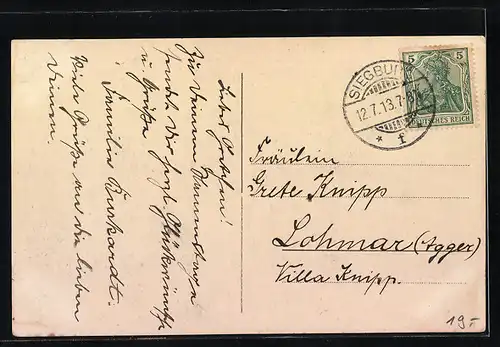 Liebes Gretchen!
Zu Deinem Namenstage
sendet Dir herzl. Glückwünsche
u. Grüße
Familie Burkardt.
Viele Grüße an die lieben
Deinen.
SIEGBURG
12.7.13.7-8
* f
5 5
DEUTSCHES REICH
Fräulein
Grete Knipp
Lohmar (Agger)
Villa Knipp.
19.-